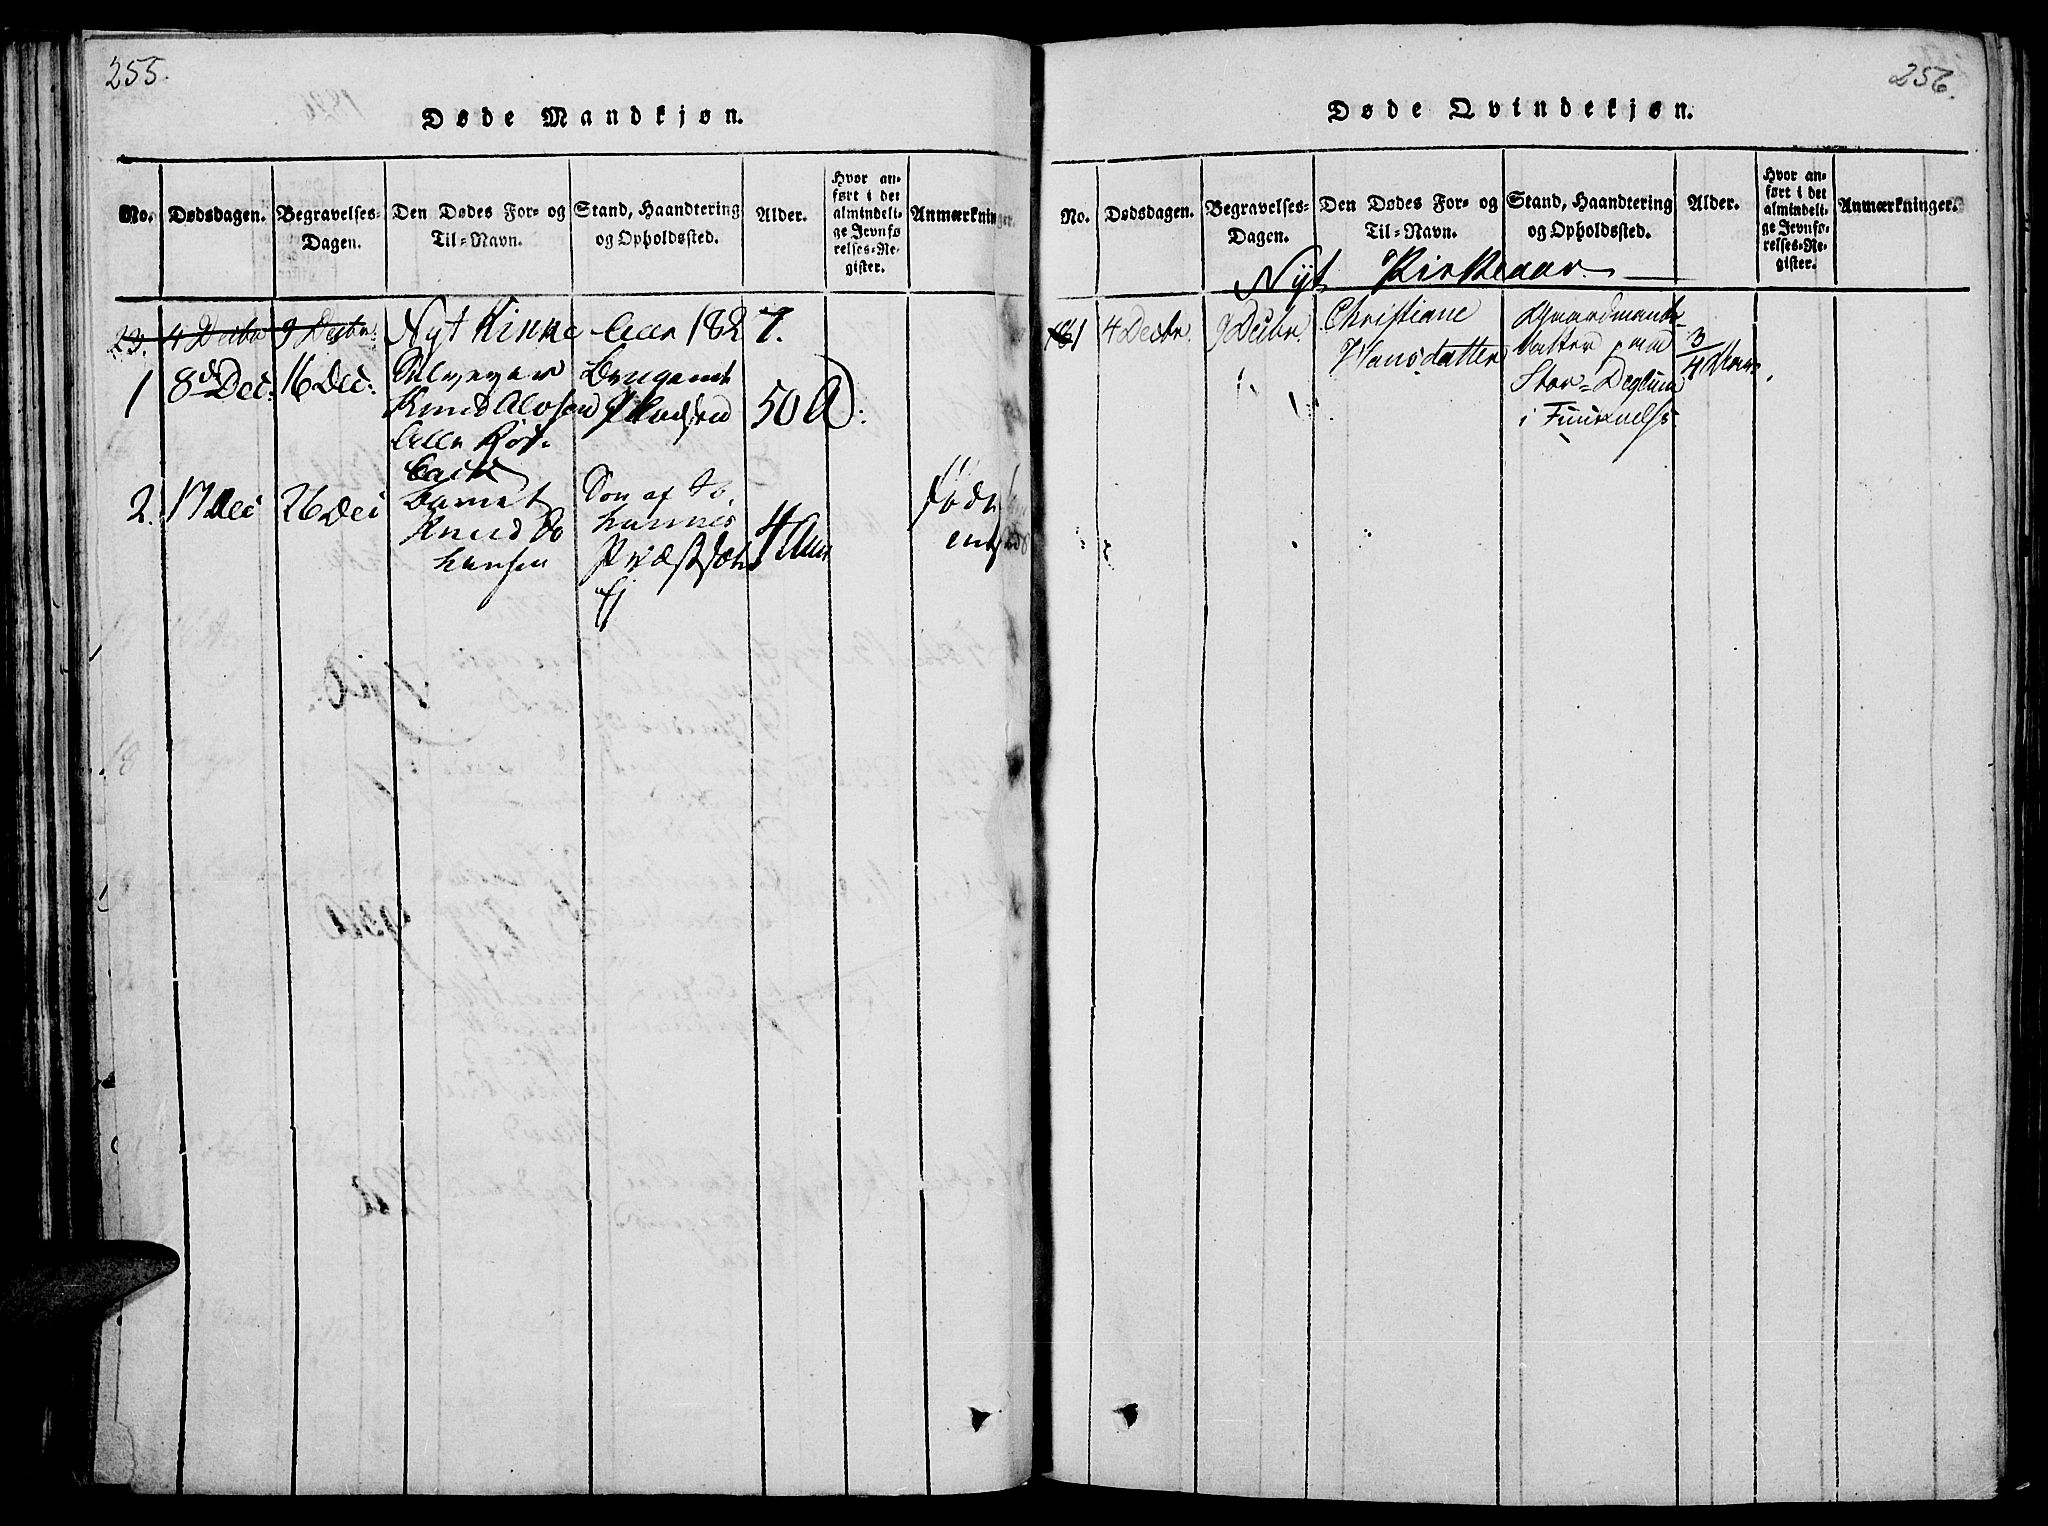 255.
Døde Mandkjøn.
No. Dødsdagen. Begravelses-Dagen. Den Dødes For- og Til-Navn. Stand, Haandtering og Opholdssted. Alder. Hvor anført i det almindelige Jevnførelses-Register. Anmærkninger.
23. 4 Decbr 9 Decbr. Nyt Kirke Aar 1827.
1 8de Dec: 16 Dec: 50 A:
Knud Olosen
2. 17 Dec 26 Dec Barnet Søn af Jo-
Knud Jo hannes 4 Aar
hansen Præstsæter
Ej
256.
Døde Qvindekjøn.
No. Dødsdagen. Begravelses-Dagen. Den Dødes For- og Til-Navn. Stand, Haandtering og Opholdssted. Alder. Hvor anført i det almindelige Jevnførelses-Register. Anmærkninger.
Nyt Kirkeaar.
1 4 Decbr. 9 Decbr. Christiane Gaardmands-
Hansdatter datter paa 3/4 Aar.
Stor-Deglum
i Furenæs